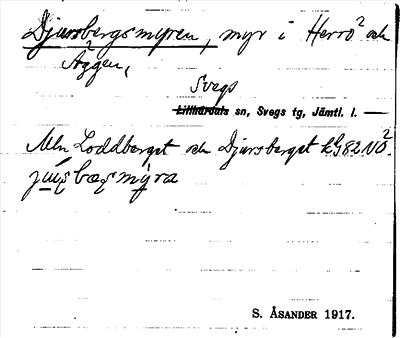 Djursbergsmyren, myr i Herrö² och
Äggen,
Svegs
Lillhärdals sn, Svegs tg, Jämtl. l. —
Mln Loddberget och Djursberget k G82 NÖ².
S. ÅSANDER 1917.